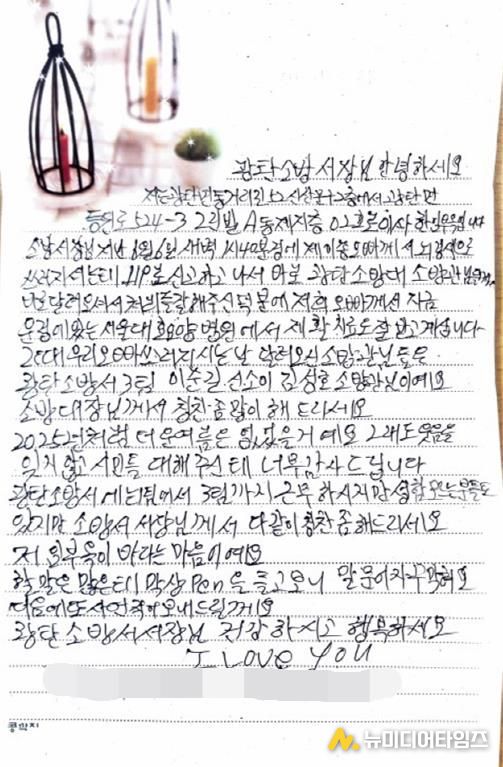 광탄소방서장님 안녕하세요
저는 광탄면 동거리 에서 광탄면
등원로 524-3 2 빌 A동 제지층 02호로 이사한
소방서장님 지난 8월 6일 새벽 1시 40분경에 제 오빠께서 뇌경색으로
쓰러지셔는데 119로 신고하고 나서 바로 광탄소방대 소방관님
달려오셔서 처치를 잘해주신 덕분에 저희 오빠께서 지금
운정에 있는 서울대효요양병원에서 재활치료도 잘 받고 계십니다
그런데 우리 오빠 쓰러지시는 날 달려오신 소방관님들은
광탄소방서 3팀 이순길 선소이 김성호 소방관님이예요
소방대장님께서 칭찬 좀 많이 해 드리세요
2025년처럼 더운 여름은 없었을거예요 그래도 웃음을
잊지 않고 시민들 대해주신데 너무 감사드립니다
광탄소방서에 1팀에서 3팀까지 근무하시지만 성함 모르는 분들도
있지만 소방서 서장님께서 다같이 칭찬 좀 해드리세요
저 외부욱이 바라는 마음이예요
할 말은 많은데 막상 Pen을 들고보니 말문이
다음에 또 사연 적어 보내드릴게요
광탄소방서 서장님 건강하시고 행복하세요
I LOVE YOU
콩깍지
뉴미디어타임즈